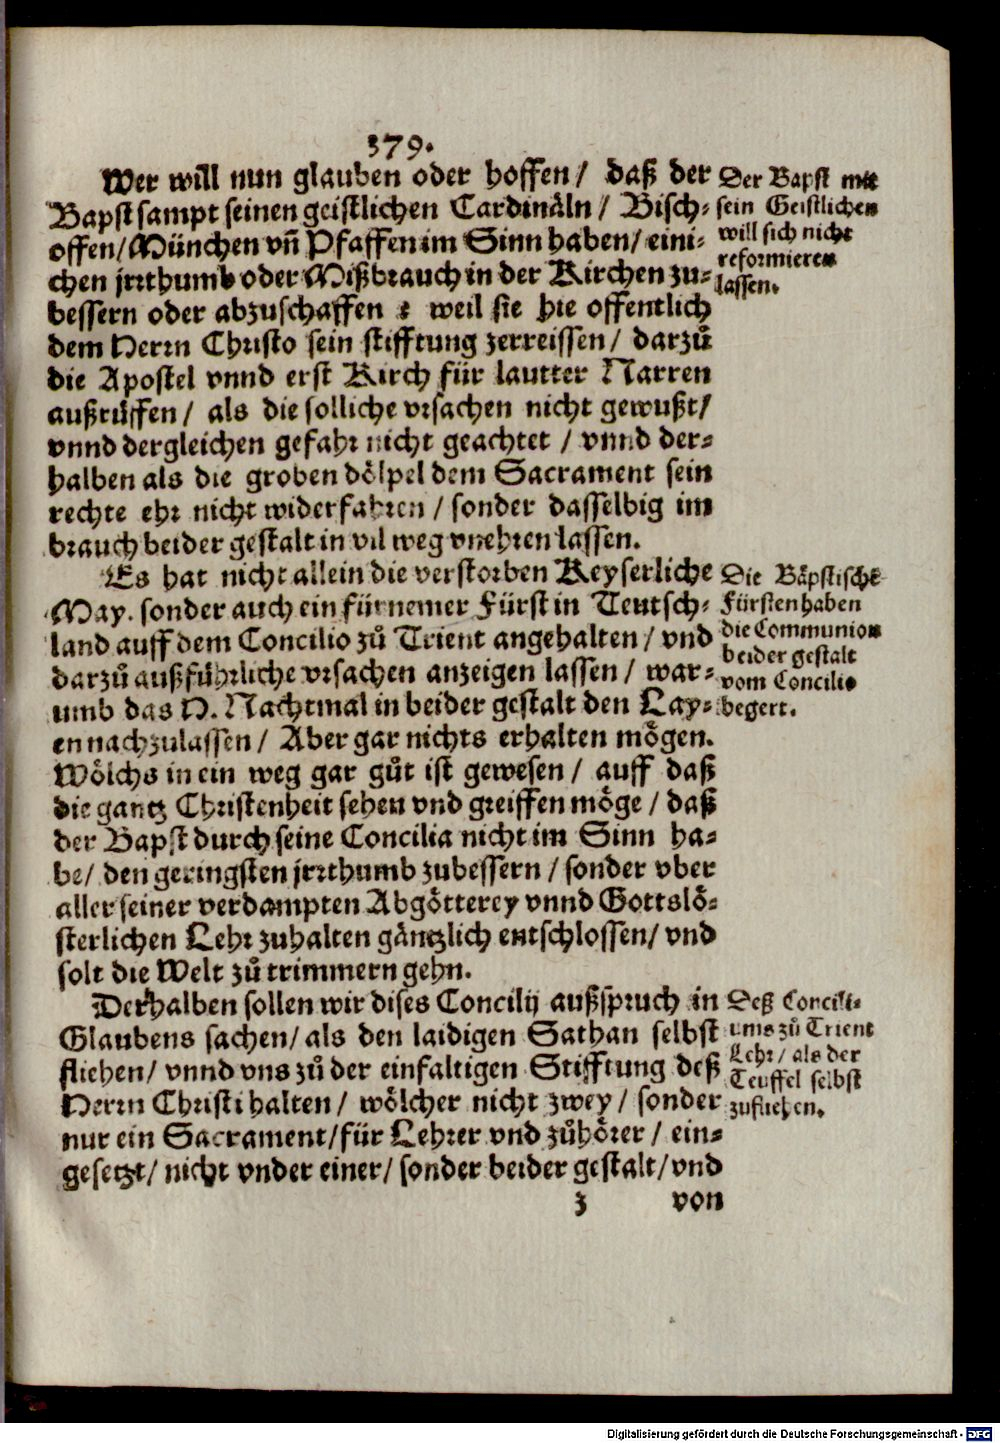 379.
Wer will nun glauben oder hoffen / daß der
Bapst sampt seinen geistlichen Cardinäln / Bisch-
offen / München vñ Pfaffen im Sinn haben / eini-
chen jrrthumb oder Mißbrauch in der Kirchen zu-
bessern oder abzuschaffen : weil sie hie offentlich
dem Herrn Christo sein stifftung zerreissen / darzů
die Apostel vnnd erst Kirch für lautter Narren
außrüffen / als die solliche vrsachen nicht gewußt /
vnnd dergleichen gefahr nicht geachtet / vnnd der-
halben als die groben dölpel dem Sacrament sein
rechte ehr nicht widerfahren / sonder dasselbig im
brauch beider gestalt in vil weg vnehren lassen.
Der Bapst mit
sein Geistlichen
will sich nicht
reformieren
lassen.
Es hat nicht allein die verstorben Keyserliche
May. sonder auch ein fürnemer Fürst in Teutsch-
land auff dem Concilio zů Trient angehalten / vnd
darzů außführliche vrsachen anzeigen lassen / war-
umb das H. Nachtmal in beider gestalt den Lay-
en nachzulassen / Aber gar nichts erhalten mögen.
Wölchs in ein weg gar gůt ist gewesen / auff daß
die gantz Christenheit sehen vnd greiffen möge / daß
der Bapst durch seine Concilia nicht im Sinn ha-
be / den geringsten jrrthumb zubessern / sonder vber
aller seiner verdampten Abgötterey vnnd Gottslö-
sterlichen Lehr zuhalten gäntzlich entschlossen / vnd
solt die Welt zů trimmern gehn.
Die Bäpstische
Fürsten haben
die Communion
beider gestalt
vom Concilio
begert.
Derhalben sollen wir dises Concilij außspruch in
Glaubens sachen / als den laidigen Sathan selbst
fliehen / vnnd vns zů der einfaltigen Stifftung deß
Herrn Christi halten / wölcher nicht zwey / sonder
nur ein Sacrament / für Lehrer vnd zůhörer / ein-
gesetzt / nicht vnder einer / sonder beider gestalt / vnd
Deß Concili-
ums zů Trient
Lehr / als der
Teuffel selbst
zufliehen.
z von
Digitalisierung gefördert durch die Deutsche Forschungsgemeinschaft - DFG